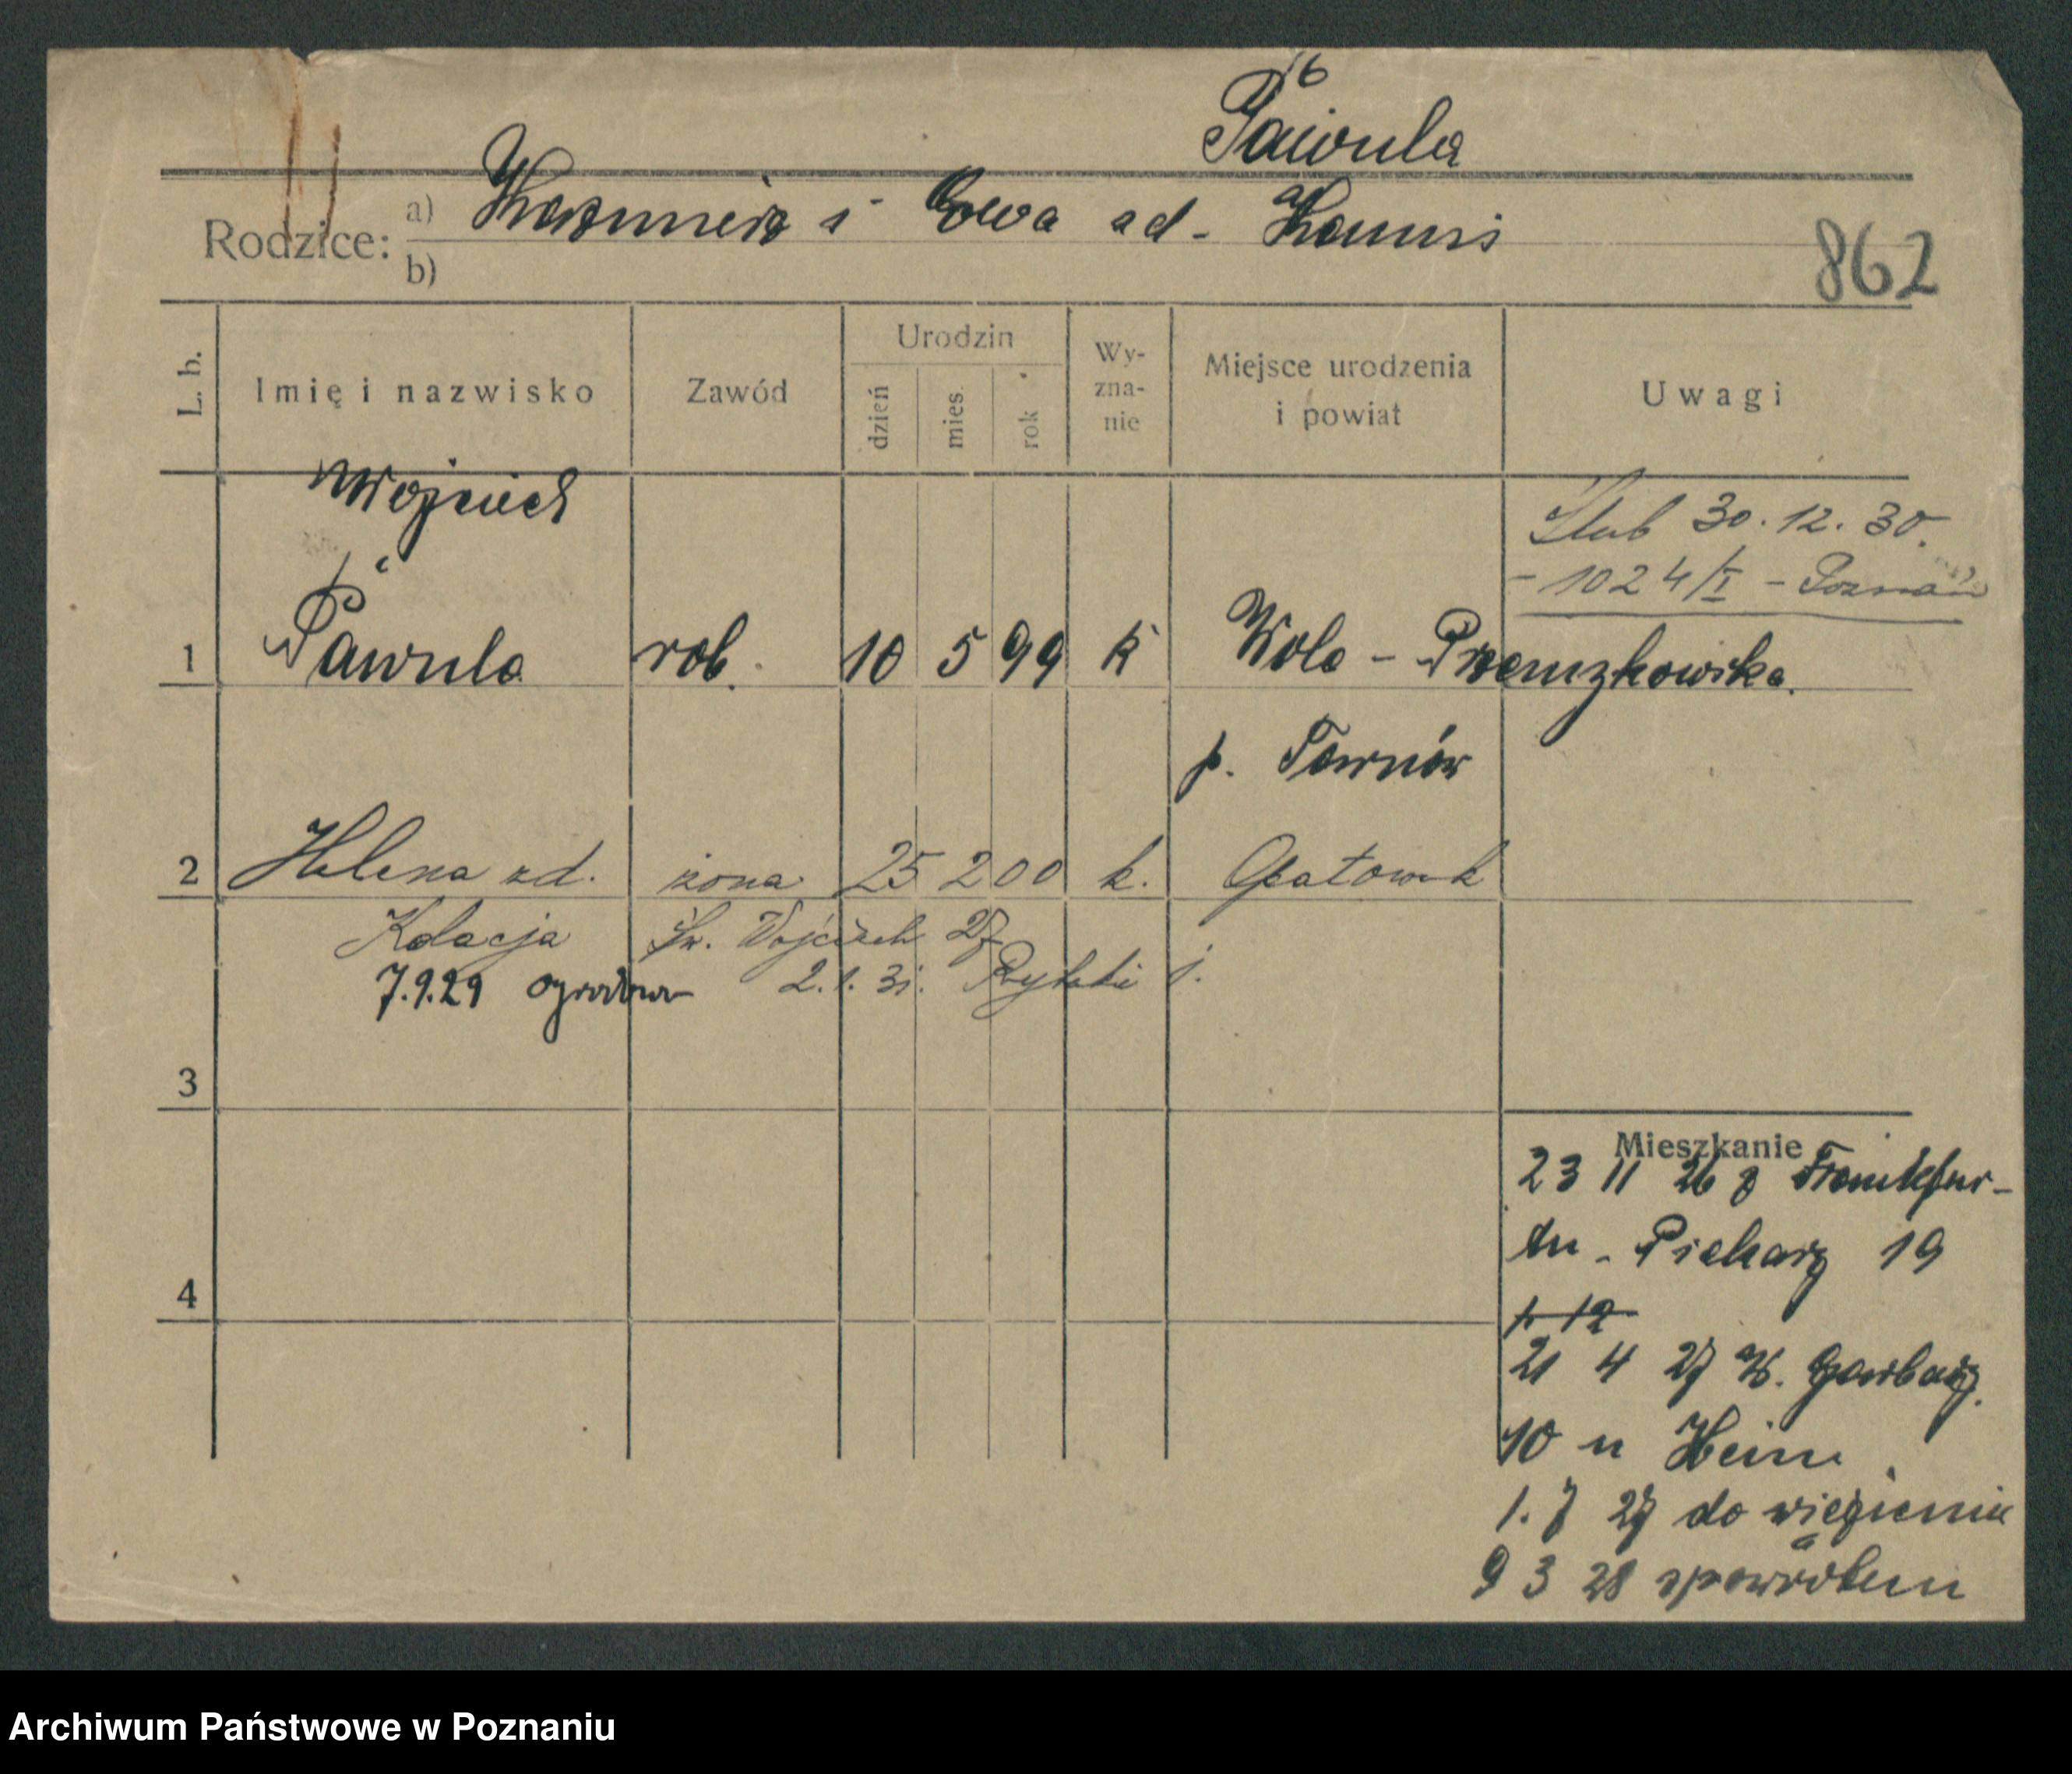 16
Pawula
Rodzice: a) Kazimierz i Ewa zd.
b)
862
L. b. Imię i nazwisko Zawód Urodzin dzień mies. rok Wy-zna-nie Miejsce urodzenia i powiat Uwagi
Wojciech
Ślub 30. 12. 30.
- 1024/I - Poznań
1 Pawula rob. 10 5 99 k Wola -
p. Tarnów
2 Helena zd. żona 25 2 00 k. Opatówek
Kolacja Św. Wojciech 27
7.9.29 2.1.31. Rybaki
3
Mieszkanie
23 11 26 z Frankfur-
tu - Piekary 19
4
21 4 27 W. Garbary
10 u Hein
1. 7 27 do więzienia
9 3 28 z powrotem
Archiwum Państwowe w Poznaniu